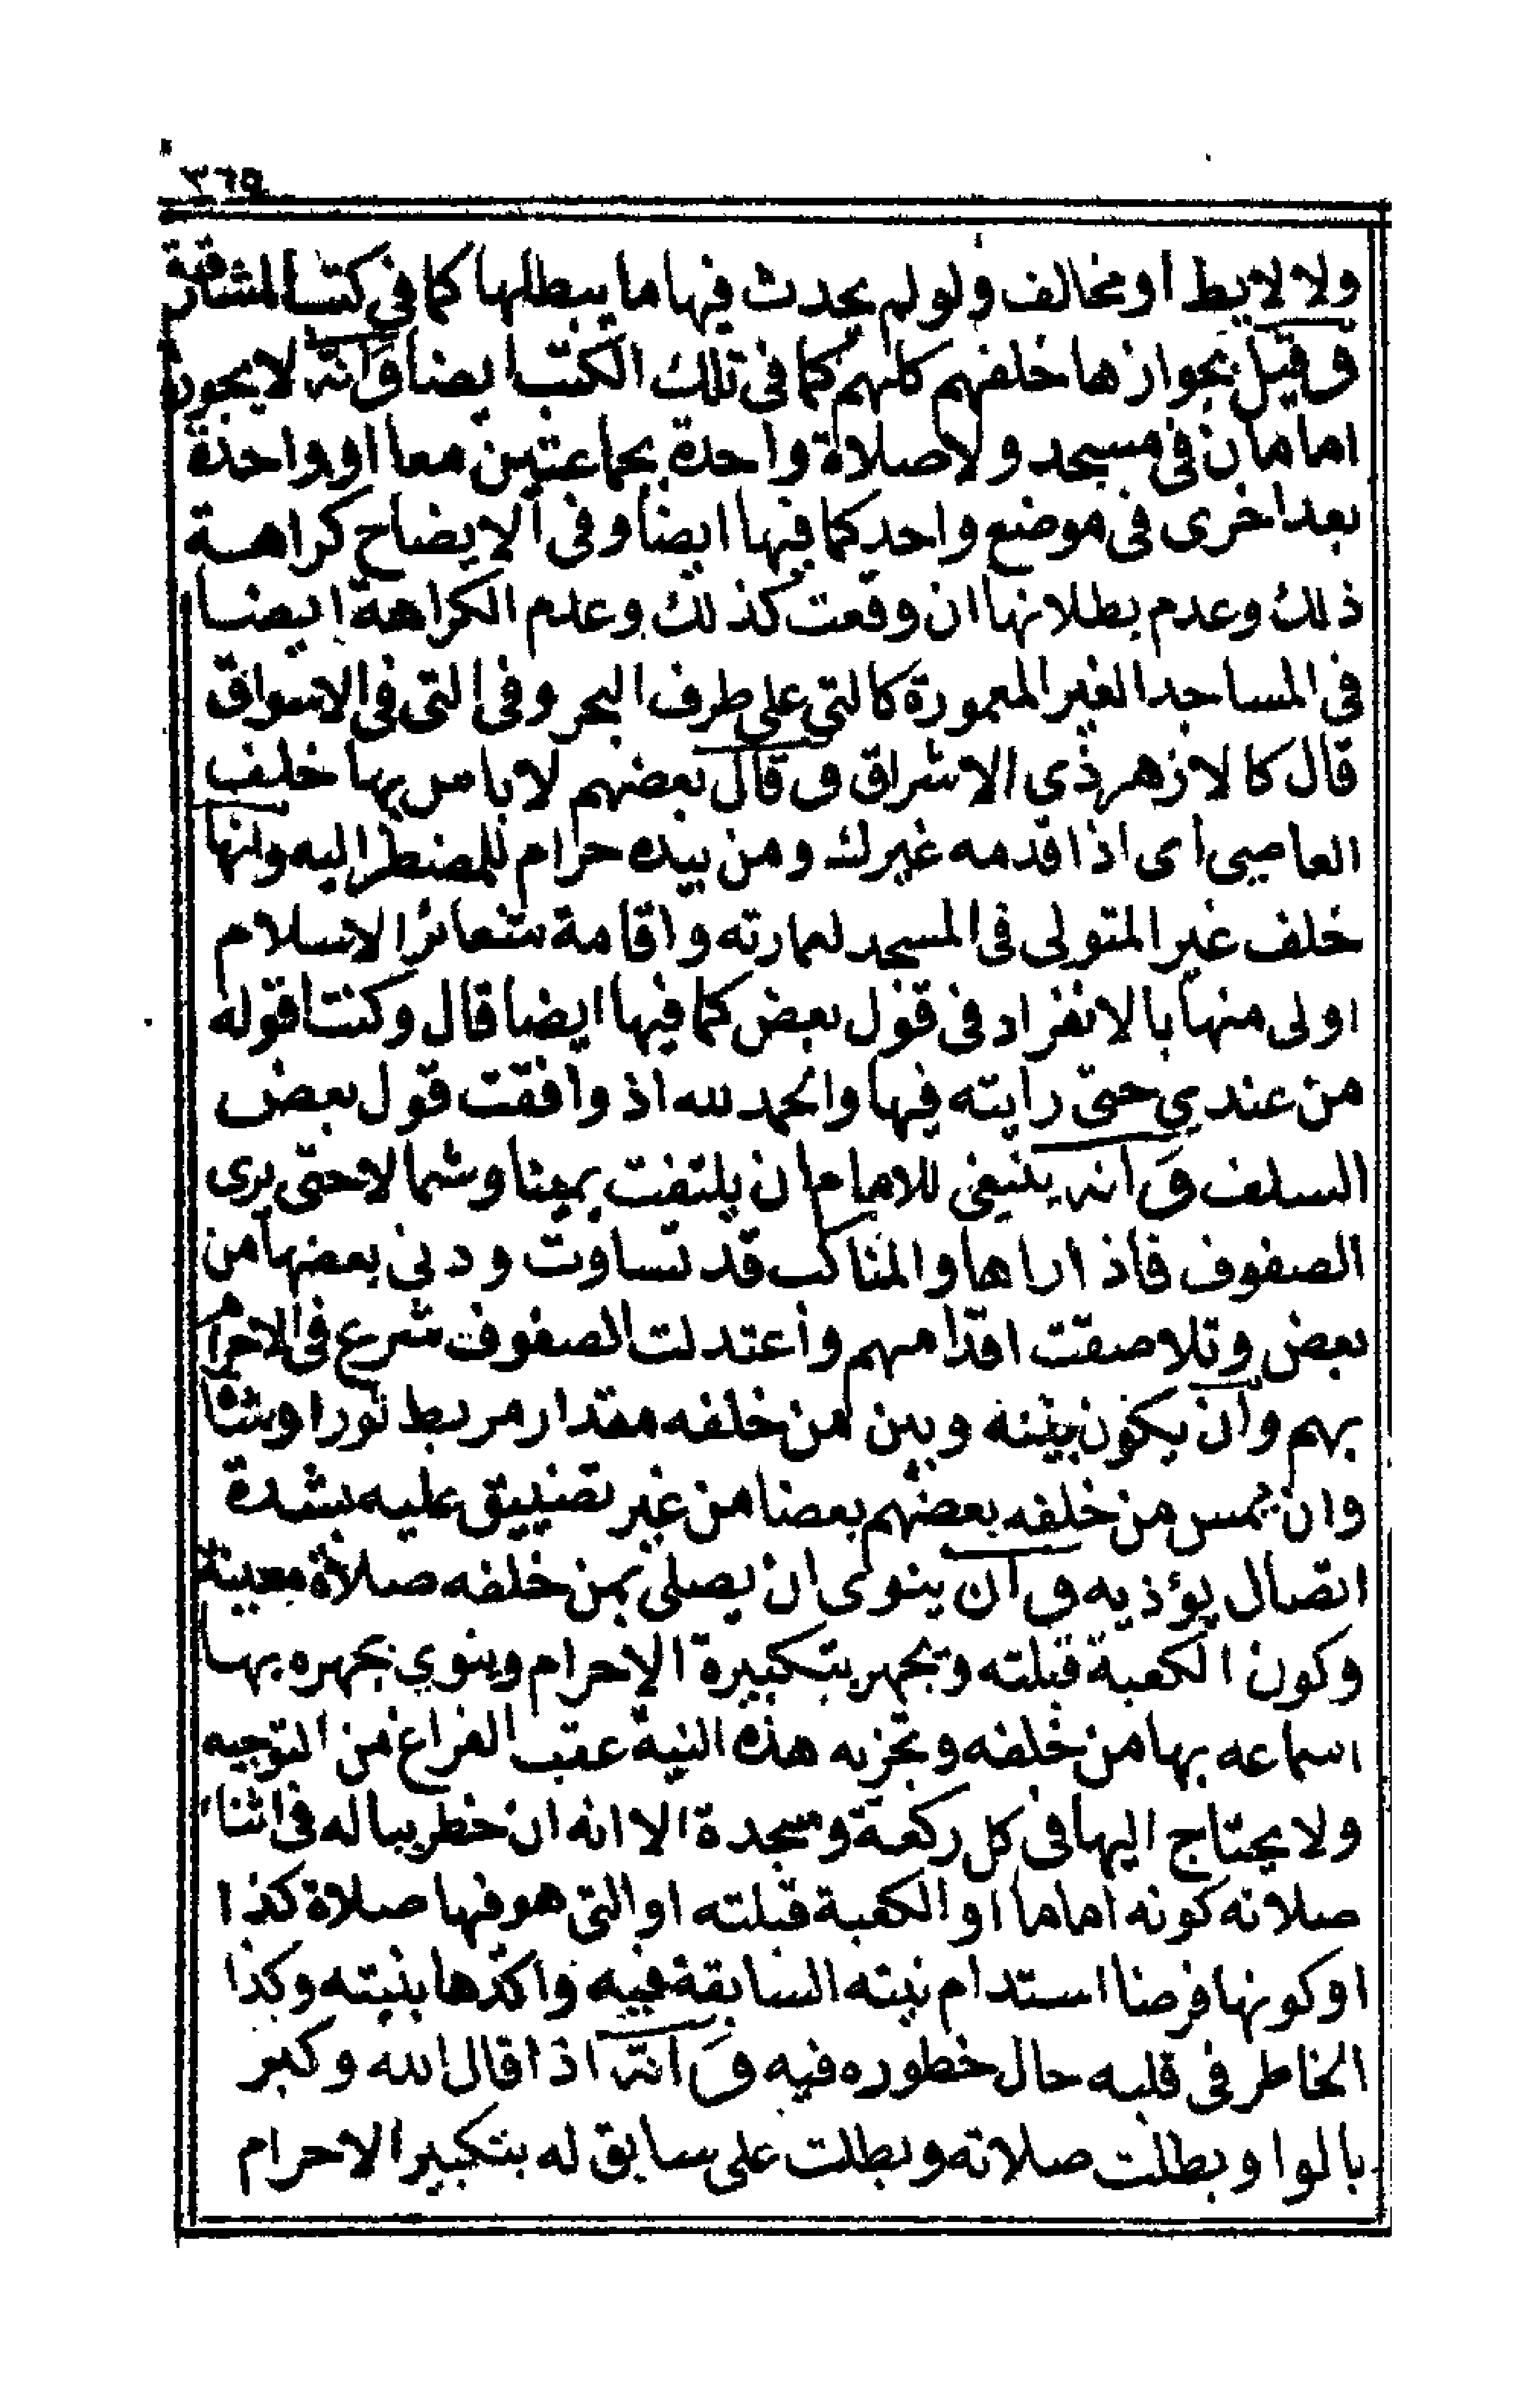 ٣٦٥
ولا لايط او مخالف ولو لم يحدث فيها ما يبطلها كما في كتب المشارقة
وقيل بجوازها خلفهم كلهم كما فى تلك الكتب ايضا وانه لا يجوز
امامان فى مسجد ولا صلاة واحدة بجماعتين معا او واحدة
بعد اخرى فى موضع واحد كما فيها ايضا وفى الايضاح كراهـة
ذلك وعدم بطلانها ان وقعت كذلك وعدم الكراهة ايضـا
فى المساجد الغير المعمورة كالتي على طرف البحر وفى التى فى الاسواق
قال كالازهر ذي الاشراق وقال بعضهم لا باس بها خلف
العاصى اى اذا قدمه غيرك ومن بيده حرام للمضطر اليه وانها
خلف غير المتولى فى المسجد لعمارته واقامة شعائر الاسلام
اولى منها بالانفراد فى قول بعض كما فيها ايضا قال وكنت اقوله
من عندي حتى رايته فيها والحمد لله اذ وافقت قول بعض
السلف وانه ينبغى للامام ان يلتفت يمينا وشمالا حتى يرى
الصفوف فاذا راها والمناكب قد تساوت ودنى بعضها من
بعض وتلاصقت اقدامهم واعتدلت الصفوف شرع فى الاحرام
بهم وان يكون بينه وبين من خلفه مقدار مربط ثور او شاة
وان يمس من خلفه بعضهم بعضا من غير تضييق عليه بشدة
اتصال يؤذيه وان ينوى ان يصلى بمن خلفه صلاة معينة
وكون الكعبة قبلته ويجهر بتكبيرة الاحرام وينوي بجهره بهـا
اسماعه بها من خلفه وتجزيه هذه النية عقب الفراغ من التوجيه
ولا يحتاج اليها فى كل ركعة وسجدة الا انه ان خطر بباله فى اثناء
صلاته كونه اماما او الكعبة قبلته او التى هو فيها صلاة كذا
او كونها فرضا استدام نيته السابقة فيه واكدها بنيته وكذا
الخاطر فى قلبه حال خطوره فيه وانه اذا قال الله وكبر
بالواو بطلت صلاته وبطلت على سابق له بتكبير الاحرام